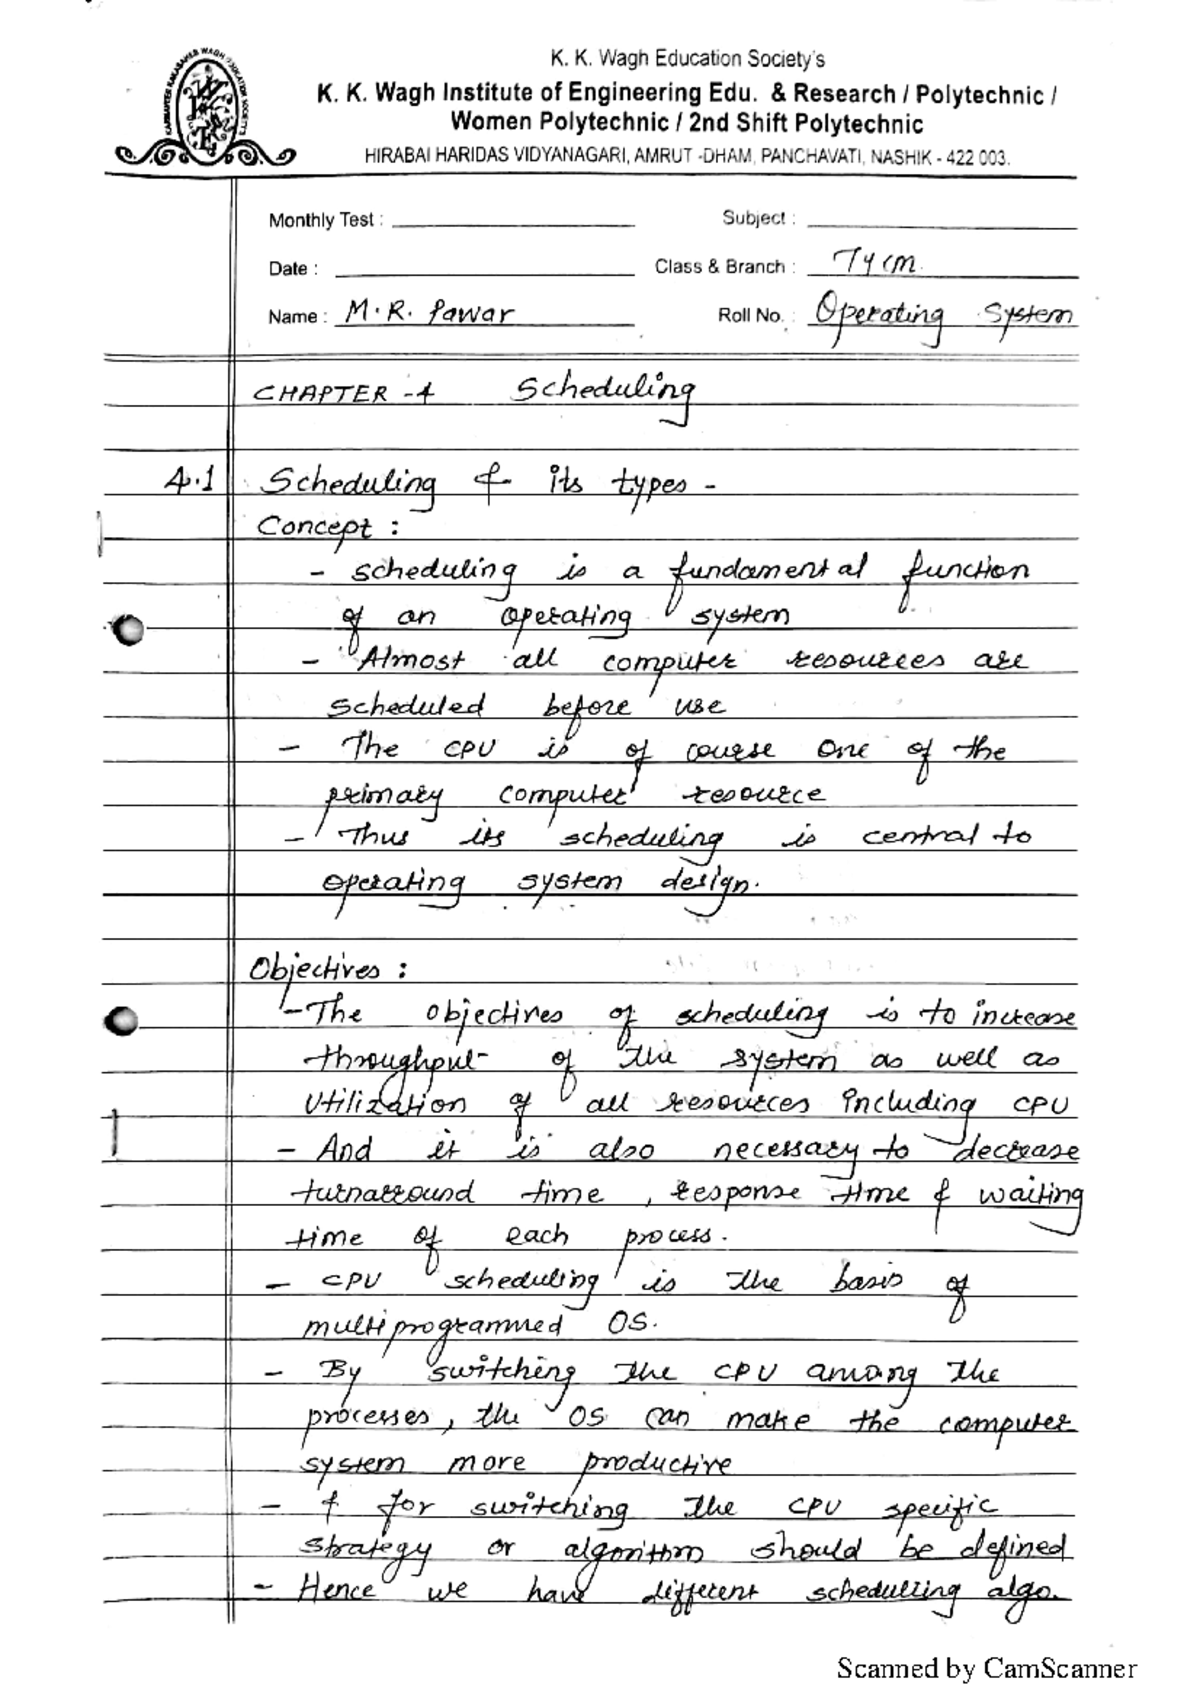 K. K. Wagh Education Society's
K. K. Wagh Institute of Engineering Edu. & Research / Polytechnic /
Women Polytechnic / 2nd Shift Polytechnic
HIRABAI HARIDAS VIDYANAGARI, AMRUT -DHAM, PANCHAVATI, NASHIK - 422 003.
Monthly Test : Subject :
Date : Class & Branch : TYCM
Name : M.R. Pawar Roll No. : Operating System
CHAPTER -4 Scheduling
4.1 Scheduling & its types -
Concept :
- scheduling is a fundamental function
of an operating system
- Almost all computer resources are
scheduled before use
- The CPU is of course one of the
primary computer resource
- Thus its scheduling is central to
operating system design.
Objectives :
- The objectives of scheduling is to increase
throughput of the system as well as
utilization of all resources including CPU
- And it is also necessary to decrease
turnaround time , response time & waiting
time of each process.
- CPU scheduling is the basis of
multiprogrammed OS.
- By switching the CPU among the
processes, the OS can make the computer
system more productive
- & for switching the CPU specific
strategy or algorithm should be defined
- Hence we have different scheduling algo.
Scanned by CamScanner